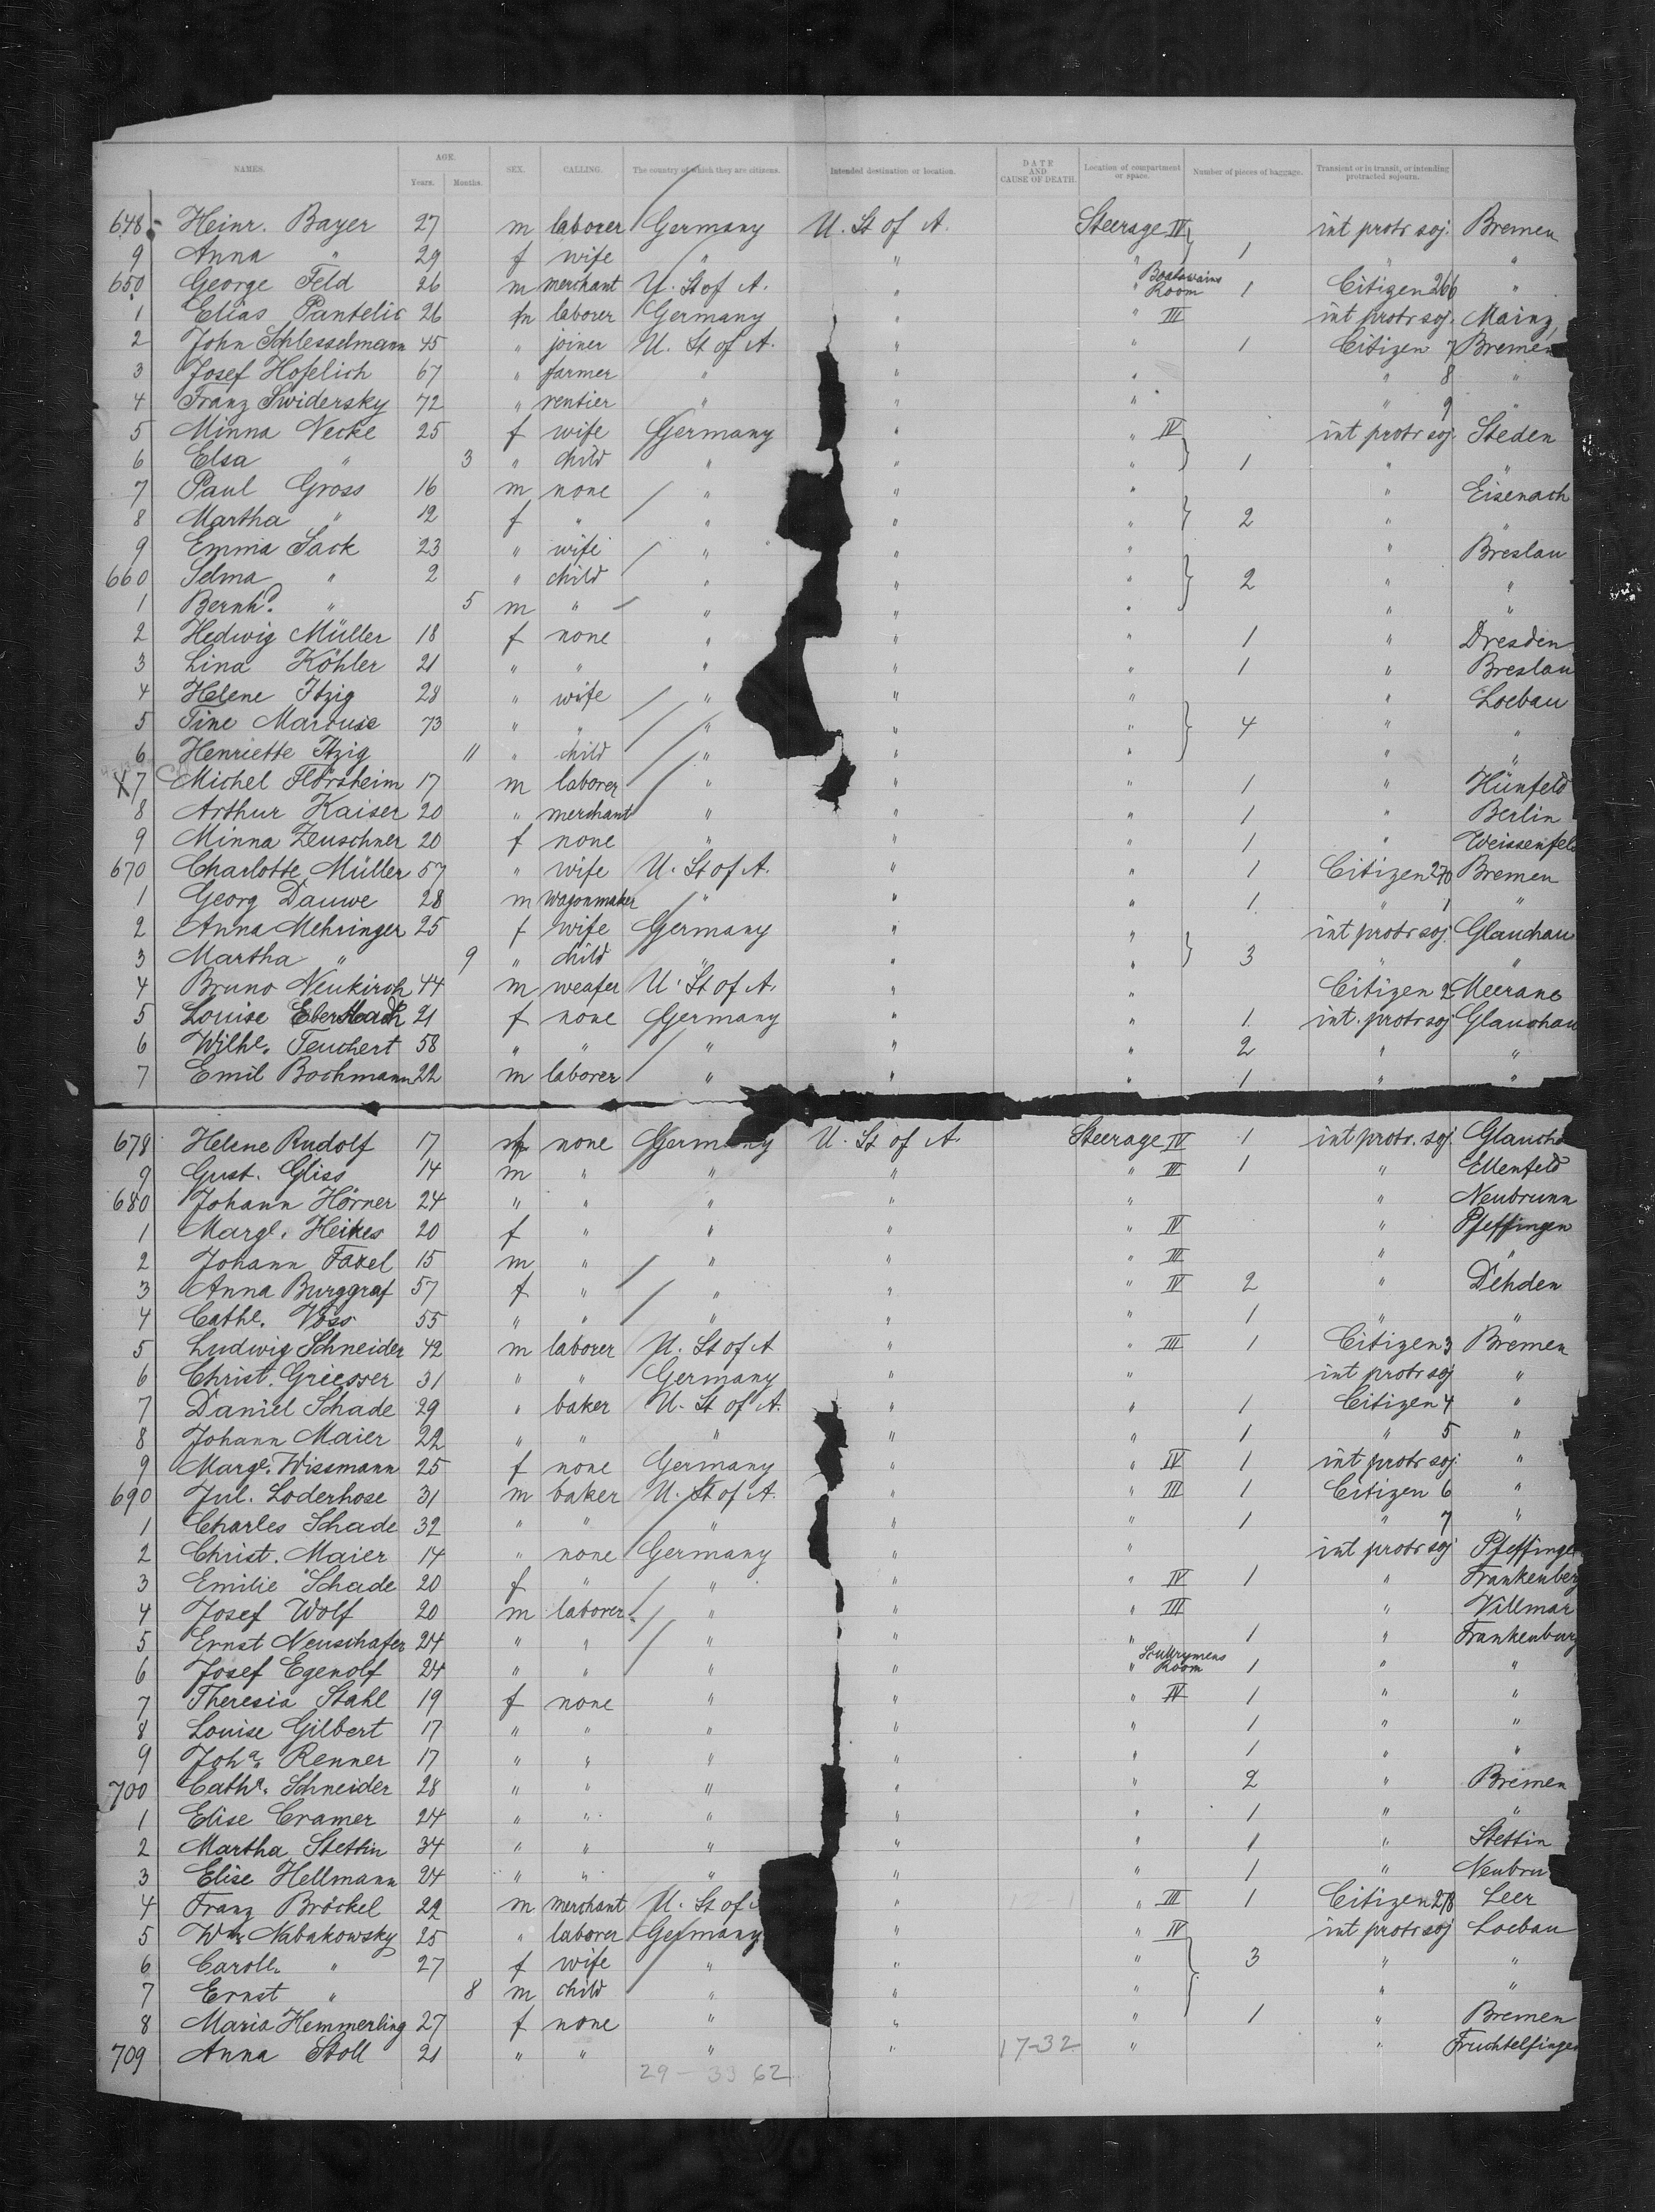 NAMES. AGE. Years. Months. SEX. CALLING. The country of which they are citizens. Intended destination or location. DATE AND CAUSE OF DEATH. Location of compartment or space. Number of pieces of baggage. Transient or in transit, or intending protracted sojourn.
648 Heinr. Bayer 27 m laborer Germany U. St of A. Steerage IV int protr soj. Bremen
9 Anna " 29 f wife " " " 1 " "
650 George Feld 26 m merchant U. St of A. " " Boatswains Room 1 Citizen 266 "
1 Elias Pantelic 26 m laborer Germany " " III int protr soj. Mainz
2 John Schlesselmann 45 " joiner U. St of A. " " 1 Citizen 7 Bremen
3 Josef Hofelich 67 " farmer " " " " 8 "
4 Franz Swidersky 72 " rentier " " " " 9 "
5 Minna Necke 25 f wife Germany " " IV int protr soj. Steden
6 Elsa " 3 " child " " " 1 " "
7 Paul Gross 16 m none " " " " Eisenach
8 Martha " 12 f " " " " 2 " "
9 Emma Sack 23 " wife " " " " Breslau
660 Selma " 2 " child " " " 2 " "
1 Bernhd. " 5 m " " " " " "
2 Hedwig Müller 18 f none " " " 1 " Dresden
3 Lina Köhler 21 " " " " " 1 " Breslau
4 Helene Itzig 28 " wife " " " " Loebau
5 Tine Marcuse 73 " " " " " 4 " "
6 Henriette Itzig 11 " child " " " " "
X7 Michel Florsheim 17 m laborer " " " 1 " Hünfeld
8 Arthur Kaiser 20 " merchant " " " 1 " Berlin
9 Minna Zeuschner 20 f none " " " 1 " Weissenfels
670 Charlotte Müller 57 " wife U. St of A. " " 1 Citizen 270 Bremen
1 Georg Dauwe 28 m wagonmaker " " " 1 " 1 "
2 Anna Mehringer 25 f wife Germany " " int protr soj. Glauchau
3 Martha " 9 " child " " " 3 " "
4 Bruno Neukirch 44 m weafer U. St of A. " " Citizen 2 Meerane
5 Louise 21 f none Germany " " 1 int. protr soj Glauchau
6 Wilhe. Teuchert 58 " " " " " 2 " "
7 Emil Bochmann 22 m laborer " " " 1 " "
678 Helene Rudolf 17 f none Germany U. St of A. Steerage IV 1 int protr. soj. Glaucha
9 Gust. Gliss 14 m " " " " III 1 " Ellenfeld
680 Johann Hörner 24 " " " " " " Neubrunn
1 Margt. Heikes 20 f " " " " IV " Pfeffingen
2 Johann Faxel 15 m " " " " III " "
3 Anna Burggraf 57 f " " " " IV 2 " Dehden
4 Cathe. Voss 55 " " " " " 1 " "
5 Ludwig Schneider 42 m laborer U. St of A " " III 1 Citizen 3 Bremen
6 Christ. Griesser 31 " " Germany " " int protr soj "
7 Daniel Schade 29 " baker U. St of A. " " 1 Citizen 4 "
8 Johann Maier 22 " " " " " 1 " 5 "
9 Marge. Wissmann 25 f none Germany " " IV 1 int protr soj. "
690 Jul. Loderhose 31 m baker U. St of A. " " III 1 Citizen 6 "
1 Charles Schade 32 " " " " " 1 " 7 "
2 Christ. Maier 14 " none Germany " " int protr soj Pfeffinge
3 Emilie Schade 20 f " " " " IV 1 " Frankenberg
4 Josef Wolf 20 m laborer " " " III " Villmar
5 Ernst Neuschafer 24 " " " " " 1 " Frankenburg
6 Josef Egenolf 24 " " " " " Scullrymens Room 1 " "
7 Theresia Stahl 19 f none " " " IV 1 " "
8 Louise Gilbert 17 " " " " " 1 " "
9 Joha. Renner 17 " " " " " 1 " "
700 Cathe. Schneider 28 " " " " " 2 " Bremen
1 Elise Cramer 24 " " " " " 1 " "
2 Martha Stettin 34 " " " " " 1 " Stettin
3 Elise Hellmann 24 " " " " " 1 " Neubru
4 Franz Bröckel 22 m merchant U. St of " " III 1 Citizen 278 Leer
5 Wm Nabakowsky 25 " laborer Germany " " IV int protr soj Loebau
6 Caroll. " 27 f wife " " " 3 " "
7 Ernst " 8 m child " " " " "
8 Maria Hemmerling 27 f none " " " 1 " Bremen
709 Anna Stoll 21 " " " " 17-32 " " Fruchtelfingen
29 - 33 62